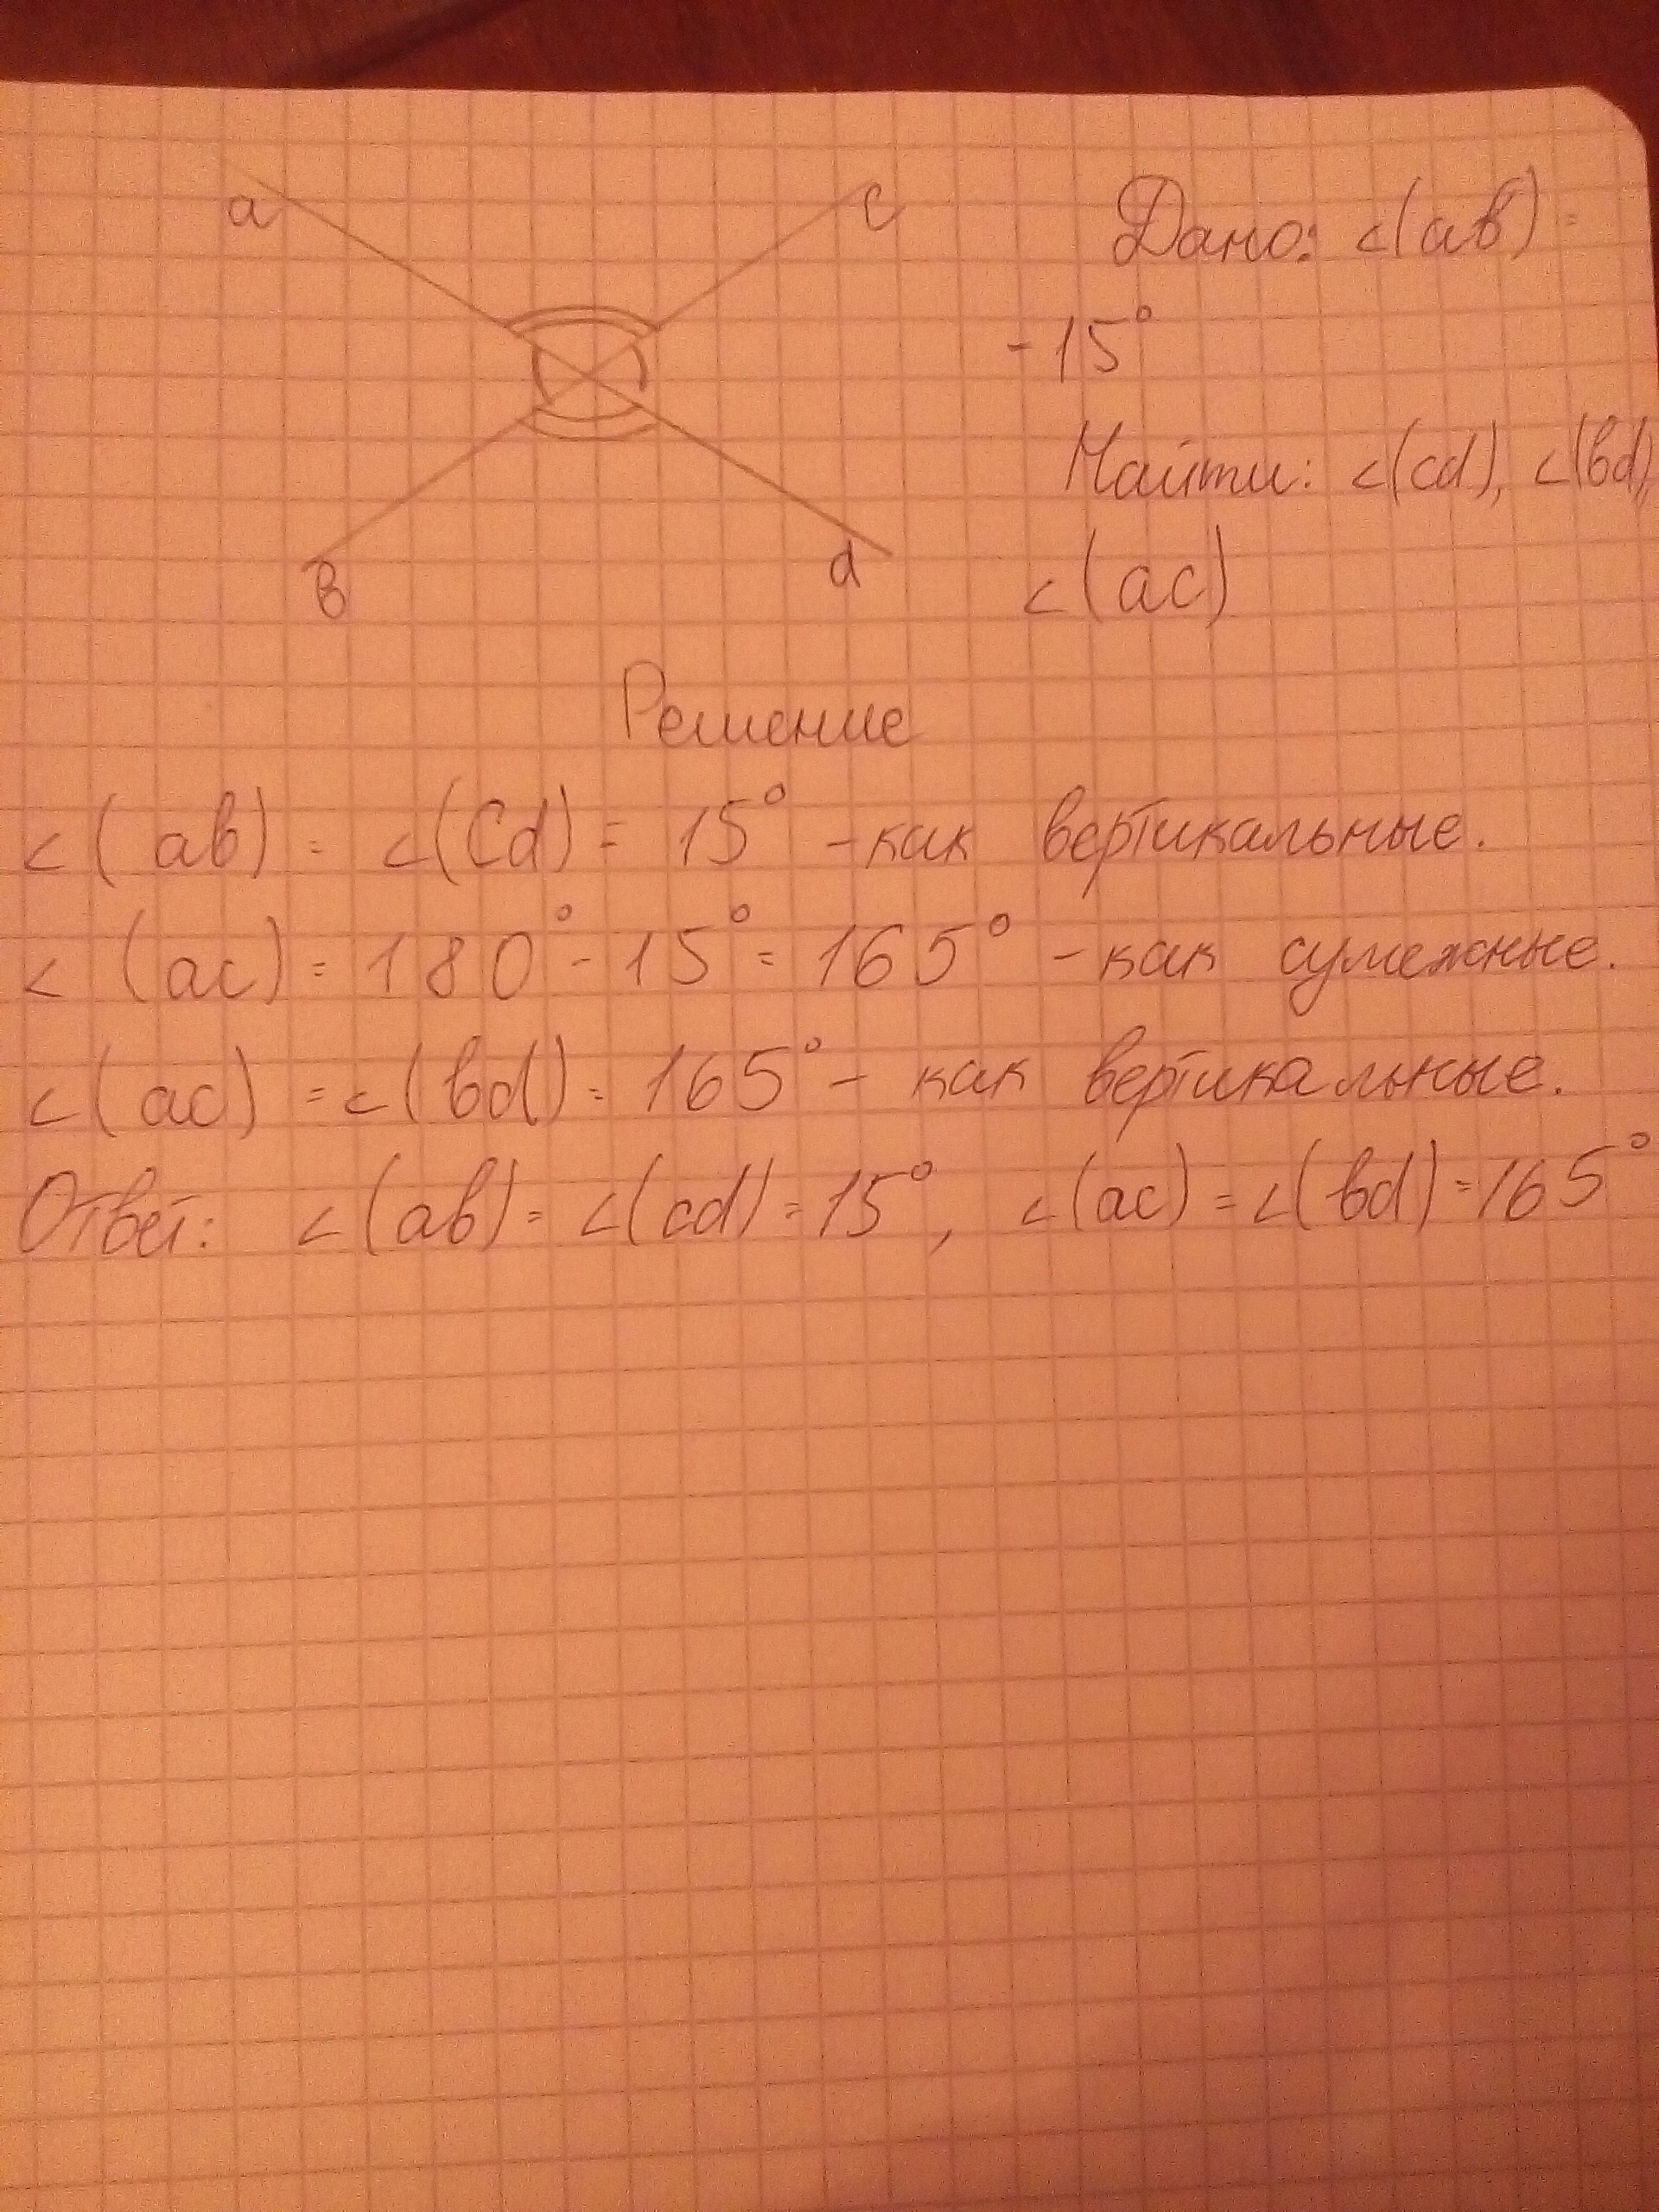 a
c
Дано: ∠(ab) =
-15°
Найти: ∠(cd), ∠(bd),
∠(ac)
b
d
Решение
∠(ab) = ∠(Cd) = 15° - как вертикальные.
∠(ac) = 180° - 15° = 165° - как сумежные.
∠(ac) = ∠(bd) = 165° - как вертикальные.
Ответ: ∠(ab) = ∠(cd) = 15°, ∠(ac) = ∠(bd) = 165°